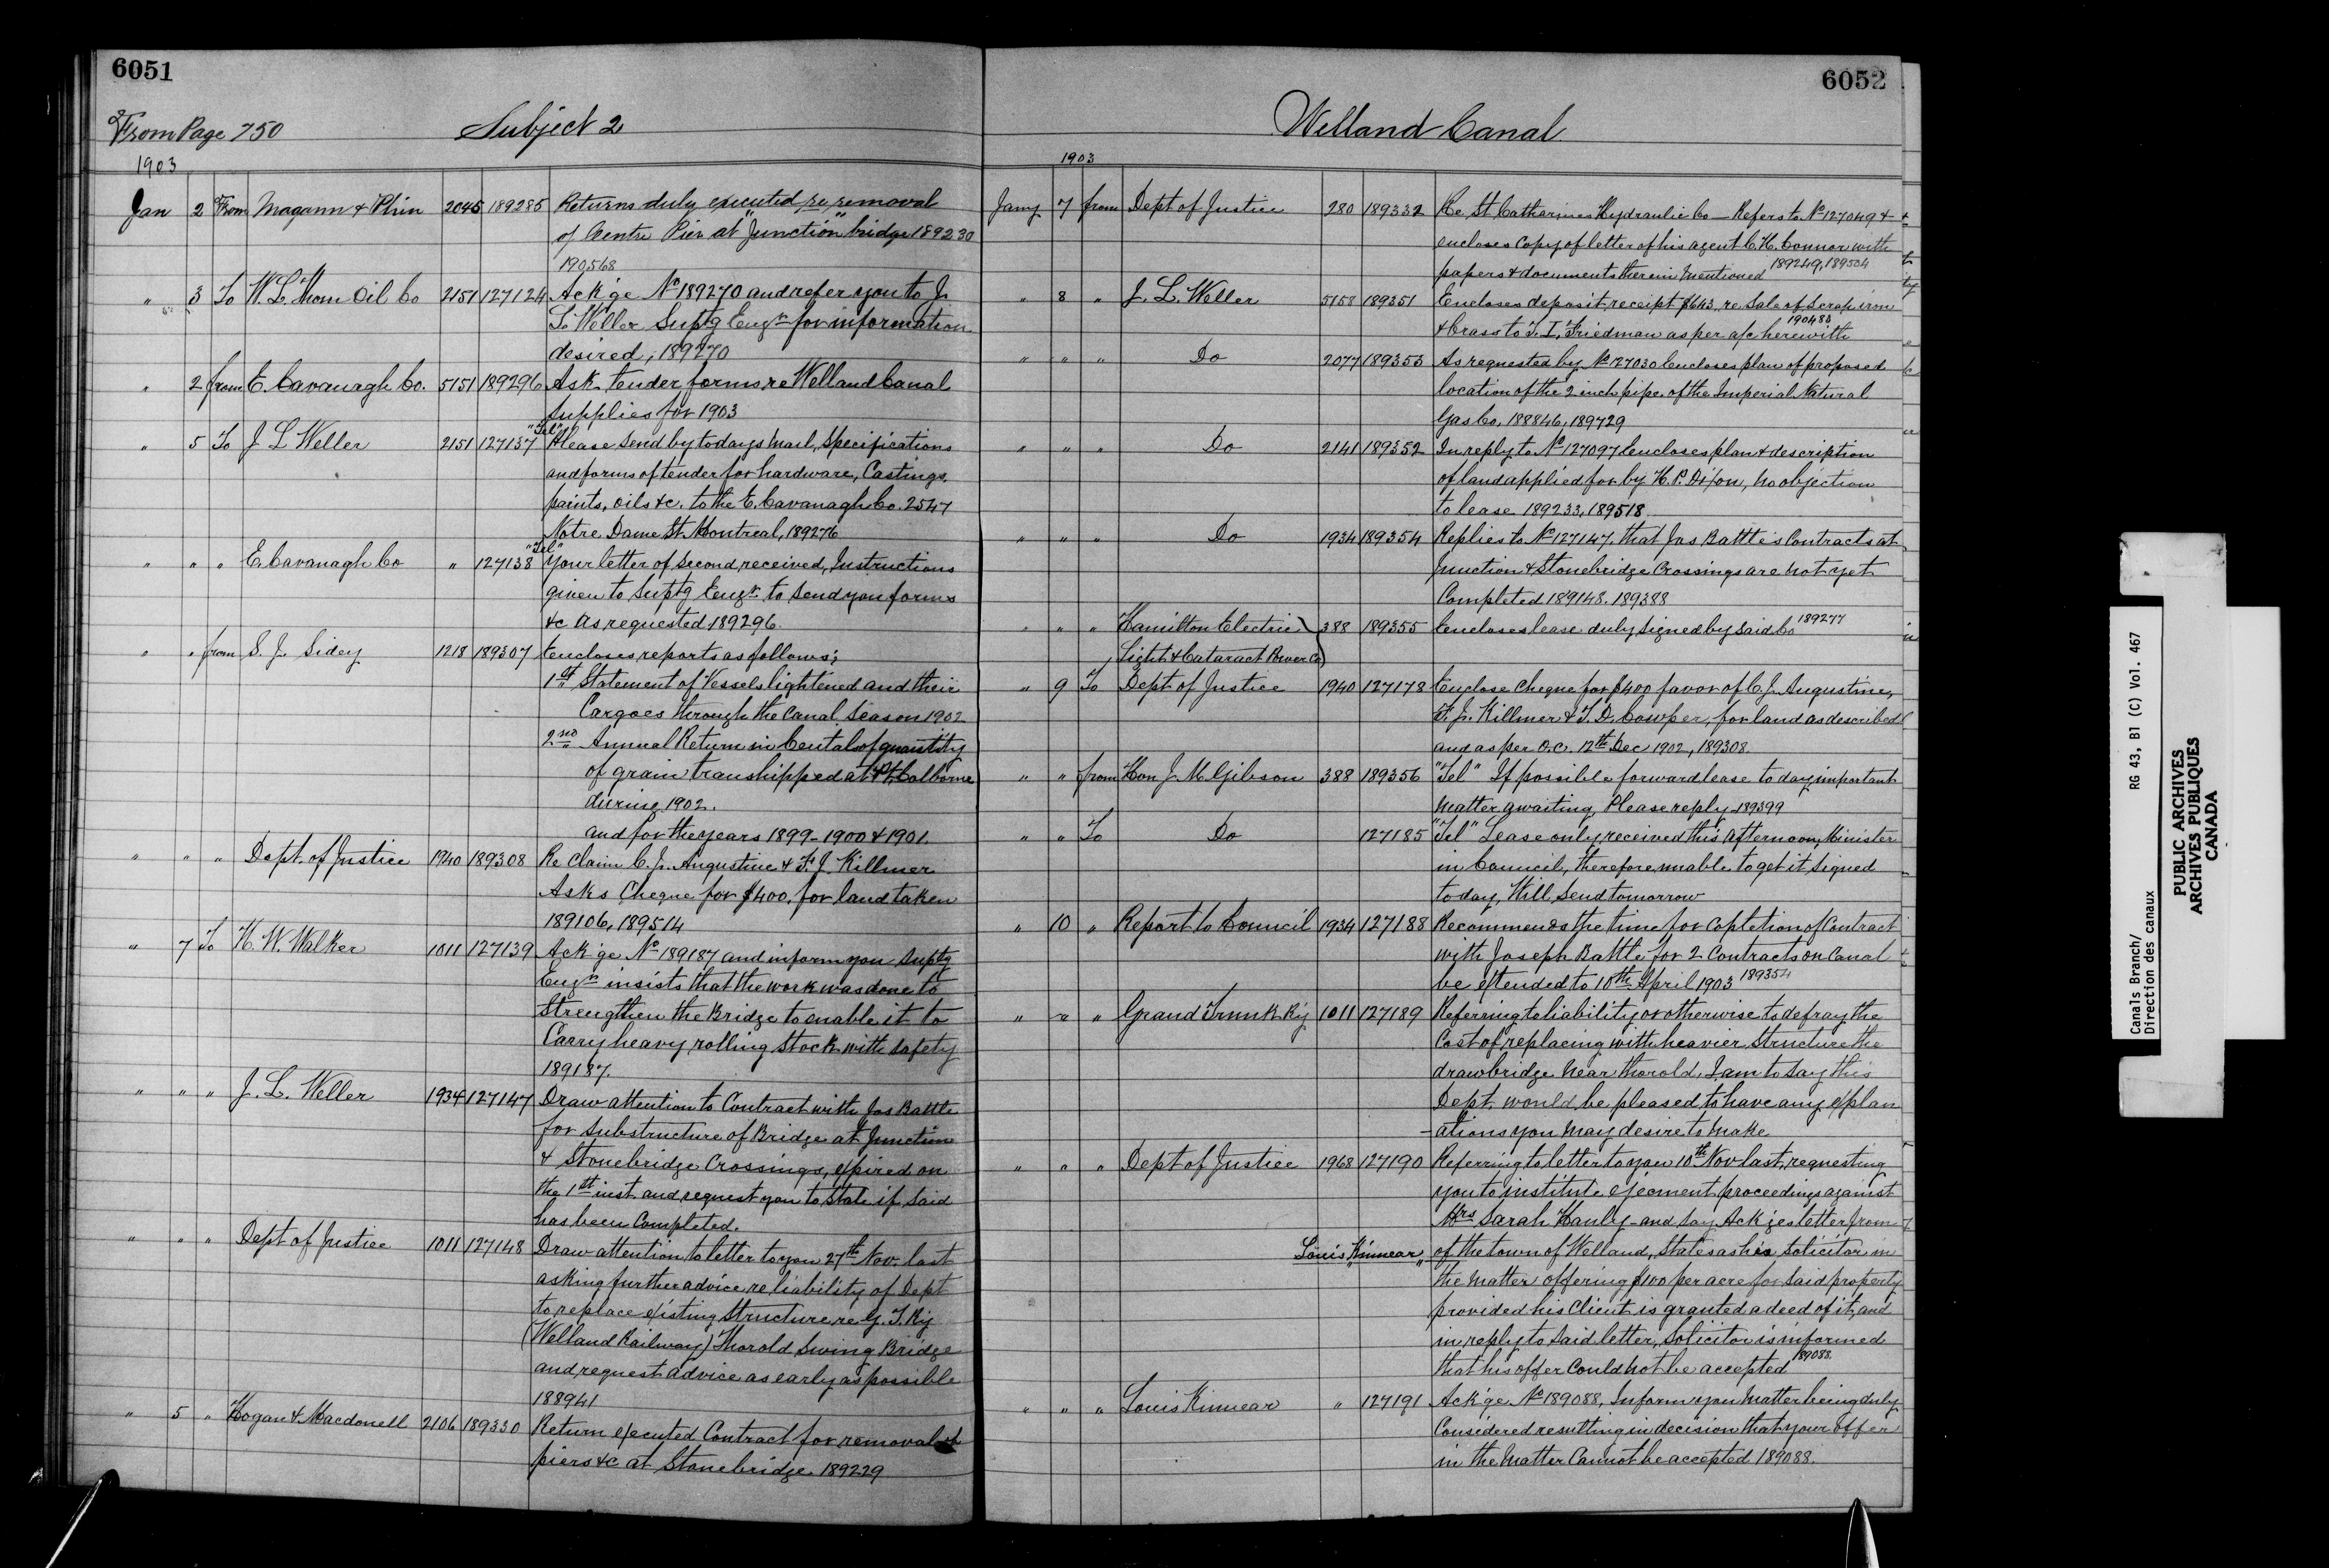 6051
From Page 750 Subject 2
1903
Jan 2 From Magann & Phin 2045 189285 Returns duly executed re removal
of Centre Pier at "Junction" bridge 189230
190568
" 3 To W. L. Thom Oil Co 2151 127124 Ack'ge No 189270 and refer you to J.
L. Weller Suptg Engr for information
desired, 189270
" 2 from E. Cavanagh Co. 5151 189296 Ask tender forms re Welland Canal
Supplies for 1903
" 5 To J L Weller 2151 127137 "Tel" Please send by todays mail, Specifications
and forms of tender for hardware, Castings,
paints, oils &c. to the E. Cavanagh Co. 2547
Notre Dame St Montreal, 189276
" " " E. Cavanagh Co " 127138 "Tel" Your letter of second received, Instructions
given to Suptg Engr to send you forms
&c as requested 189296.
" " from S. J. Sidey 1218 189307 Encloses reports as follows;
1st Statement of Vessels lightened and their
Cargoes through the Canal Season 1902
2nd Annual Return in Centals of quantity
of grain transhipped at Pt. Colborne
during 1902.
and for the years 1899-1900 & 1901.
" " " Dept. of Justice 1940 189308 Re Claim C. J. Augustine & F. J. Killmer
Asks Cheque for $400. for land taken
189106, 189514
" 7 To H. W. Walker 1011 127139 Ack'ge No 189187 and inform you Suptg
Engr insists that the work was done to
Strengthen the Bridge to enable it to
Carry heavy rolling Stock with safety
189187.
" " " J. L. Weller 1934 127147 Draw attention to Contract with Jas Battle
for Substructure of Bridge at Junction
& Stonebridge Crossings, expired on
the 1st inst and request you to state if said
has been Completed.
" " " Dept of Justice 1011 127148 Draw attention to letter to you 27th Nov. last
asking further advice re liability of Dept
to replace existing structure re G. T. Ry
(Welland Railway) Thorold Swing Bridge
and request advice as early as possible
188941
" 5 " Hogan & Macdonell 2106 189330 Return executed Contract for removal of
piers &c at Stonebridge 189229
6052
Welland Canal
1903
Jany 7 from Dept of Justice 280 189332 Re St Catharines Hydraulic Co - Refers to No 127049 &
encloses Copy of letter of his agent C. H. Connor with
papers & documents therein mentioned 189249, 189504
" 8 " J. L. Weller 5158 189351 Encloses deposit receipt $643. re Sale of Scrap iron
& brass to T. I. Friedman as per a/c herewith 190483
" " " Do 2077 189353 As requested by No 127030 Encloses plan of proposed
location of the 2 inch pipe of the Imperial Natural
Gas Co, 188846, 189729
" " " Do 2141 189352 In reply to No 127097 Encloses plan & description
of land applied for by H. P. Dixon, no objection
to lease 189233, 189518
" " " Do 1934 189354 Replies to No 127147 that Jas Battle's Contracts at
Junction & Stonebridge Crossings are not yet
Completed 189148. 189388
" " " Hamilton Electric 388 189355 Encloses lease duly signed by said Co 189277
Light & Cataract Power Co
" 9 To Dept of Justice 1940 127178 Enclose Cheque for $400 favor of C. J. Augustine,
F. J. Killmer & T. D. Cowper, for land as described
and as per O.C. 12th Dec 1902, 189308.
" " from Hon J. M. Gibson 388 189356 "Tel" If possible forward lease to day important
matter awaiting Please reply - 189399
" " To Do 127185 "Tel" Lease only received this afternoon, Minister
in Council, therefore unable to get it signed
today, Will send tomorrow
" 10 " Report to Council 1934 127188 Recommends the time for Copletion of Contract
with Joseph Battle for 2 Contracts on Canal
be extended to 10th April 1903 189354
" " " Grand Trunk Ry 1011 127189 Referring to liability or otherwise to defray the
Cost of replacing with heavier Structure the
drawbridge near Thorold, I am to say this
Dept. would be pleased to have any explan
-ations you may desire to make
" " " Dept of Justice 1968 127190 Referring to letter to you 10th Nov last, requesting
you to institute ejecment proceedings against
Mrs Sarah Hanly - and say Ack'ges letter from
Louis Kinnear of the town of Welland, States as his Solicitor in
the matter offering $100 per acre for said property
provided his Client is granted a deed of it, and
in reply to said letter, Solicitor is informed
that his offer Could not be accepted 189088.
" " " Louis Kinnear " 127191 Ack'ge No 189088, Inform you matter being duly
Considered resulting in decision that your offer
in the matter Cannot be accepted 189088.
Canals Branch/ RG 43, B1 (C) Vol. 467
Direction des canaux
PUBLIC ARCHIVES
ARCHIVES PUBLIQUES
CANADA